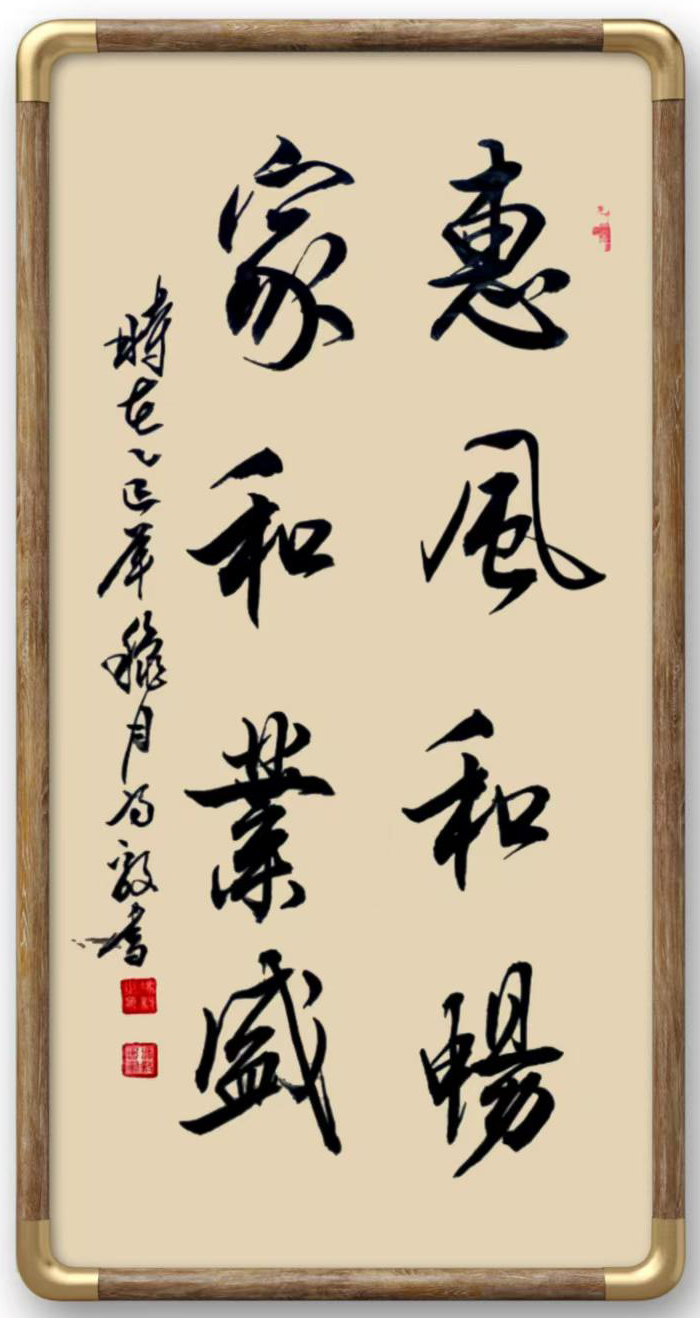 惠風和暢
家和業盛
時在乙巳年穐月冯毅書